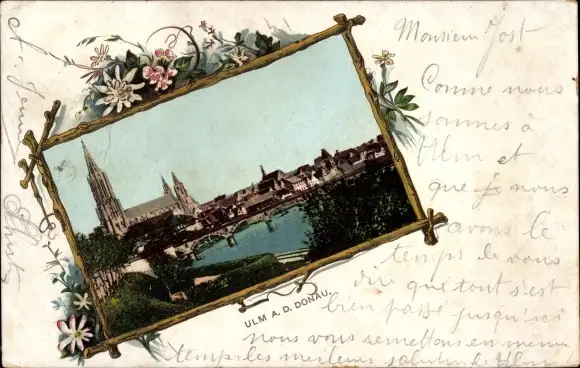 Monsieur Jost
Comme nous
sommes à
Ulm et
que nous
avons le
temps de vous
dir que tout s'est
bien passé jusqu'ici
nous vous remettons en même
temps les meilleurs salut de Ulm
ULM A. D. DONAU.